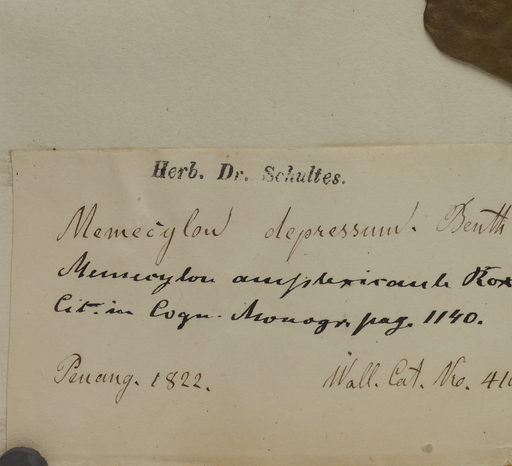 Herb. Dr. Schultes.
Memecylon depressum. Benth
Memecylon amplexicaule Rox
Cit. in Cogn. Monogr. pag. 1140.
Penang. 1822. Wall. Cat. No. 410